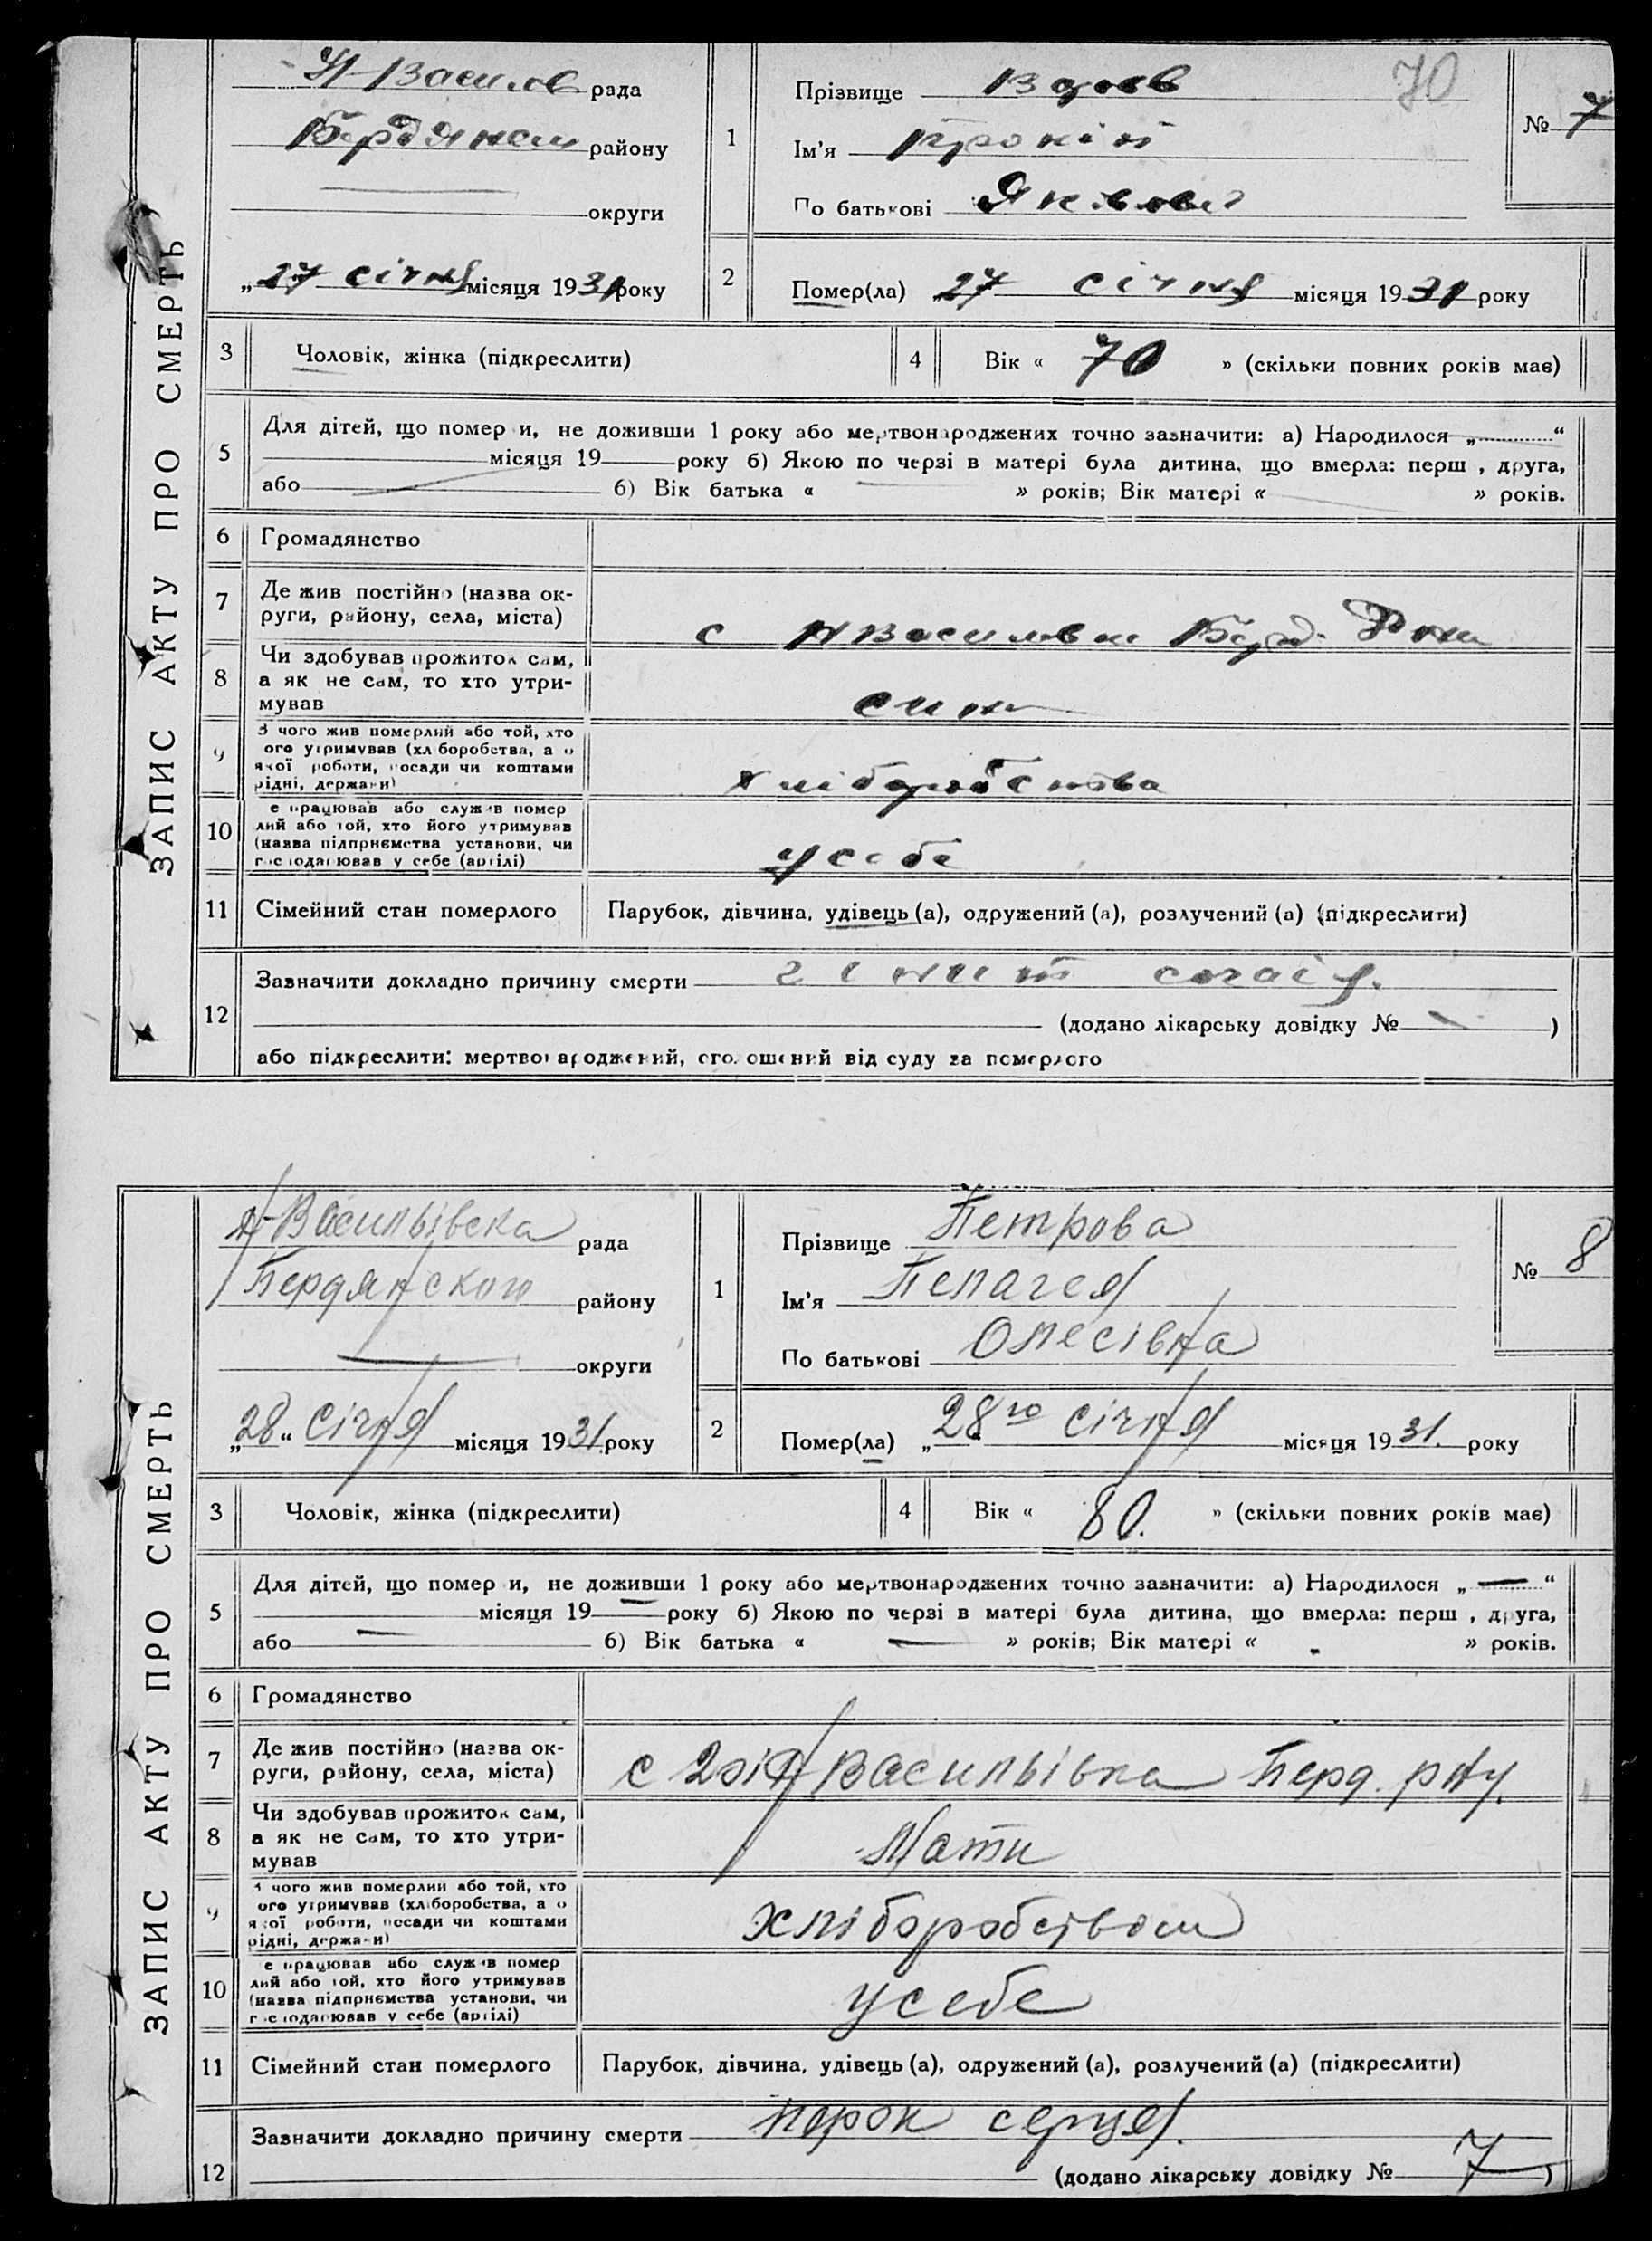 ЗАПИС АКТУ ПРО СМЕРТЬ
Н-Васил рада
Бердянськ району
округи
„27 січня місяця 1931 року
1
Прізвище Вдовв
70
Ім'я Прокіп
По батькові Яківович
№ 7
2
Помер(ла) 27 січня місяця 1931 року
3 Чоловік, жінка (підкреслити)
4 Вік « 70 » (скільки повних років має)
5 Для дітей, що помер и, не доживши 1 року або мертвонароджених точно зазначити: а) Народилося „ “
місяця 19 року б) Якою по черзі в матері була дитина, що вмерла: перш , друга,
або 6) Вік батька « » років; Вік матері « » років.
6 Громадянство
7 Де жив постійно (назва ок-
руги, району, села, міста)
с НВасиловка Берд.
8 Чи здобував прожиток сам,
а як не сам, то хто утри-
мував
син
9 З чого жив померлий або той, хто
ого утримував (хл боробства, а о
якої роботи, посади чи коштами
рідні, держави)
хліборобства
10 е працював або служив помер
лий або той, хто його утримував
(назва підприємства установи, чи
г сподарював у себе (артілі)
у себе
11 Сімейний стан померлого
Парубок, дівчина, удівець (а), одружений (а), розлучений (а) (підкреслити)
12 Зазначити докладно причину смерти
(додано лікарську довідку № )
або підкреслити: мертвонароджений, оголошений від суду за померлого
ЗАПИС АКТУ ПРО СМЕРТЬ
Н-Васильівска рада
Бердянского району
округи
„28“ січня місяця 1931. року
1
Прізвище Петрова
Ім'я Пелагея
По батькові Олесівна
№ 8
2
Помер(ла) „28го січня місяця 1931. року
3 Чоловік, жінка (підкреслити)
4 Вік « 80. » (скільки повних років має)
5 Для дітей, що помер и, не доживши 1 року або мертвонароджених точно зазначити: а) Народилося „ — “
місяця 19 — року б) Якою по черзі в матері була дитина, що вмерла: перш , друга,
або — 6) Вік батька « — » років; Вік матері « » років.
6 Громадянство
7 Де жив постійно (назва ок-
руги, району, села, міста)
с Васильівка Берд. рну.
8 Чи здобував прожиток сам,
а як не сам, то хто утри-
мував
Мати
9 чого жив померлий або той, хто
ого утримував (хліборобства, а о
якої роботи, посади чи коштами
рідні, держави)
хліборобством
10 е працював або служив помер
лий або той, хто його утримував
(назва підприємства установи, чи
г сподарював у себе (артілі)
у себе
11 Сімейний стан померлого
Парубок, дівчина, удівець (а), одружений (а), розлучений (а) (підкреслити)
12 Зазначити докладно причину смерти порок серця.
(додано лікарську довідку № 7)